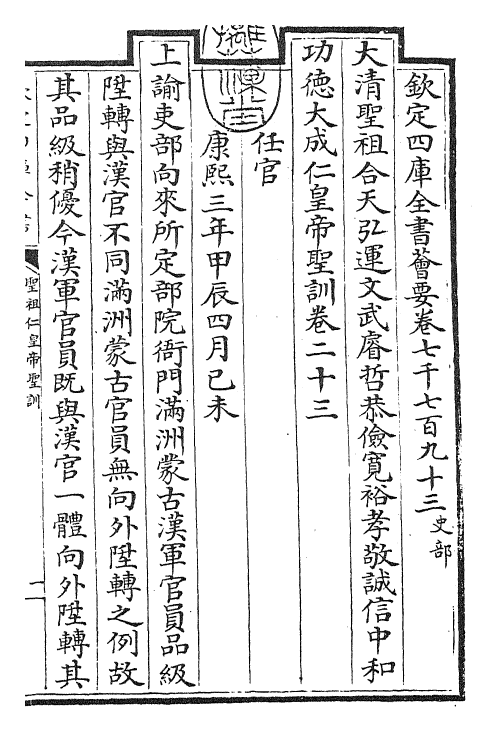 欽定四庫全書薈要卷七千七百九十三史部
大清聖祖合天弘運文武睿哲恭儉寛裕孝敬誠信中和
功徳大成仁皇帝聖訓卷二十三
任官
康熙三年甲辰四月己未
上諭吏部向來所定部院衙門滿洲蒙古漢軍官員品級
陞轉與漢官不同滿洲蒙古官員無向外陞轉之例故
其品級稍優今漢軍官員既與漢官一體向外陞轉其
聖祖仁皇帝聖訓